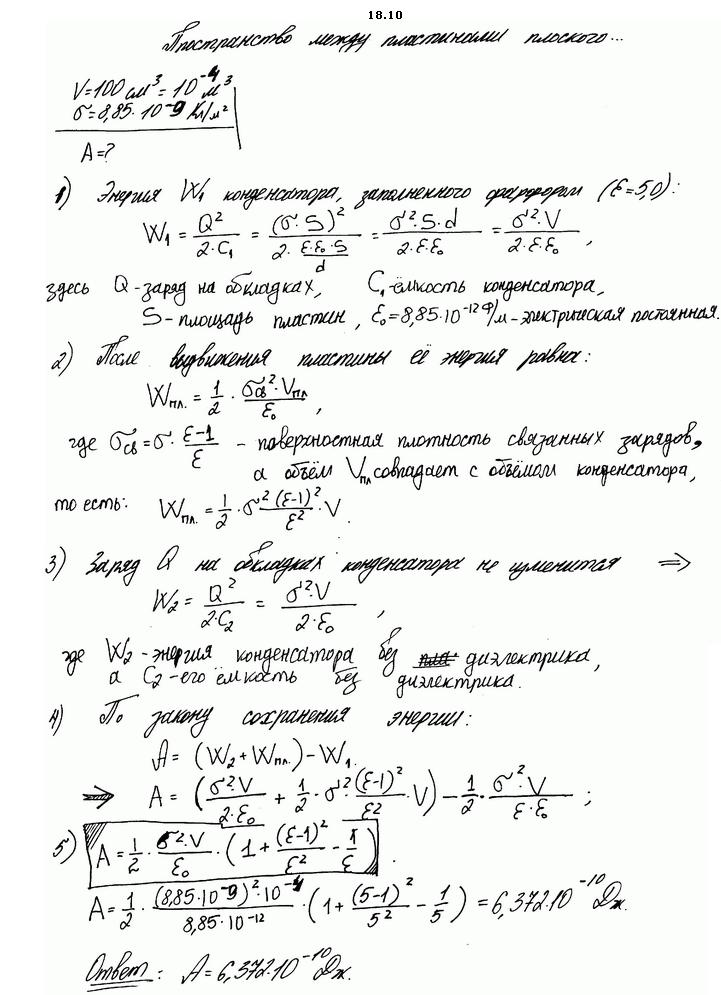 18.10
Пространство между пластинами плоского...
V=100 см³ = 10⁻⁴ м³
σ=8,85·10⁻⁹ Кл/м²
A=?
1) Энергия W₁ конденсатора, заполненного фарфором (ε=5,0):
W₁ = Q²/(2·C₁) = (σ·S)²/(2·(ε·ε₀·S)/d) = (σ²·S·d)/(2·ε·ε₀) = (σ²·V)/(2·ε·ε₀),
здесь Q-заряд на обкладках, C₁-ёмкость конденсатора,
S-площадь пластин, ε₀=8,85·10⁻¹² Ф/м-электрическая постоянная.
2) После выдвижения пластины её энергия равна:
Wпл. = 1/2 · (σсв²·Vпл)/ε₀,
где σсв=σ·(ε-1)/ε - поверхностная плотность связанных зарядов,
а объём Vпл совпадает с объёмом конденсатора,
то есть: Wпл. = 1/2 · σ² (ε-1)²/ε² · V.
3) Заряд Q на обкладках конденсатора не изменится ⇒
W₂ = Q²/(2·C₂) = (σ²·V)/(2·ε₀),
где W₂-энергия конденсатора без диэлектрика,
а C₂-его ёмкость без диэлектрика.
4) По закону сохранения энергии:
A = (W₂+Wпл.)-W₁.
⇒ A = ((σ²·V)/(2·ε₀) + 1/2·σ²·(ε-1)²/ε²·V) - 1/2·(σ²·V)/(ε·ε₀);
5) A = 1/2 · (σ²·V)/ε₀ · (1 + (ε-1)²/ε² - 1/ε).
A = 1/2 · ((8,85·10⁻⁹)²·10⁻⁴)/(8,85·10⁻¹²) · (1 + (5-1)²/5² - 1/5) = 6,372·10⁻¹⁰ Дж.
Ответ: A=6,372·10⁻¹⁰ Дж.